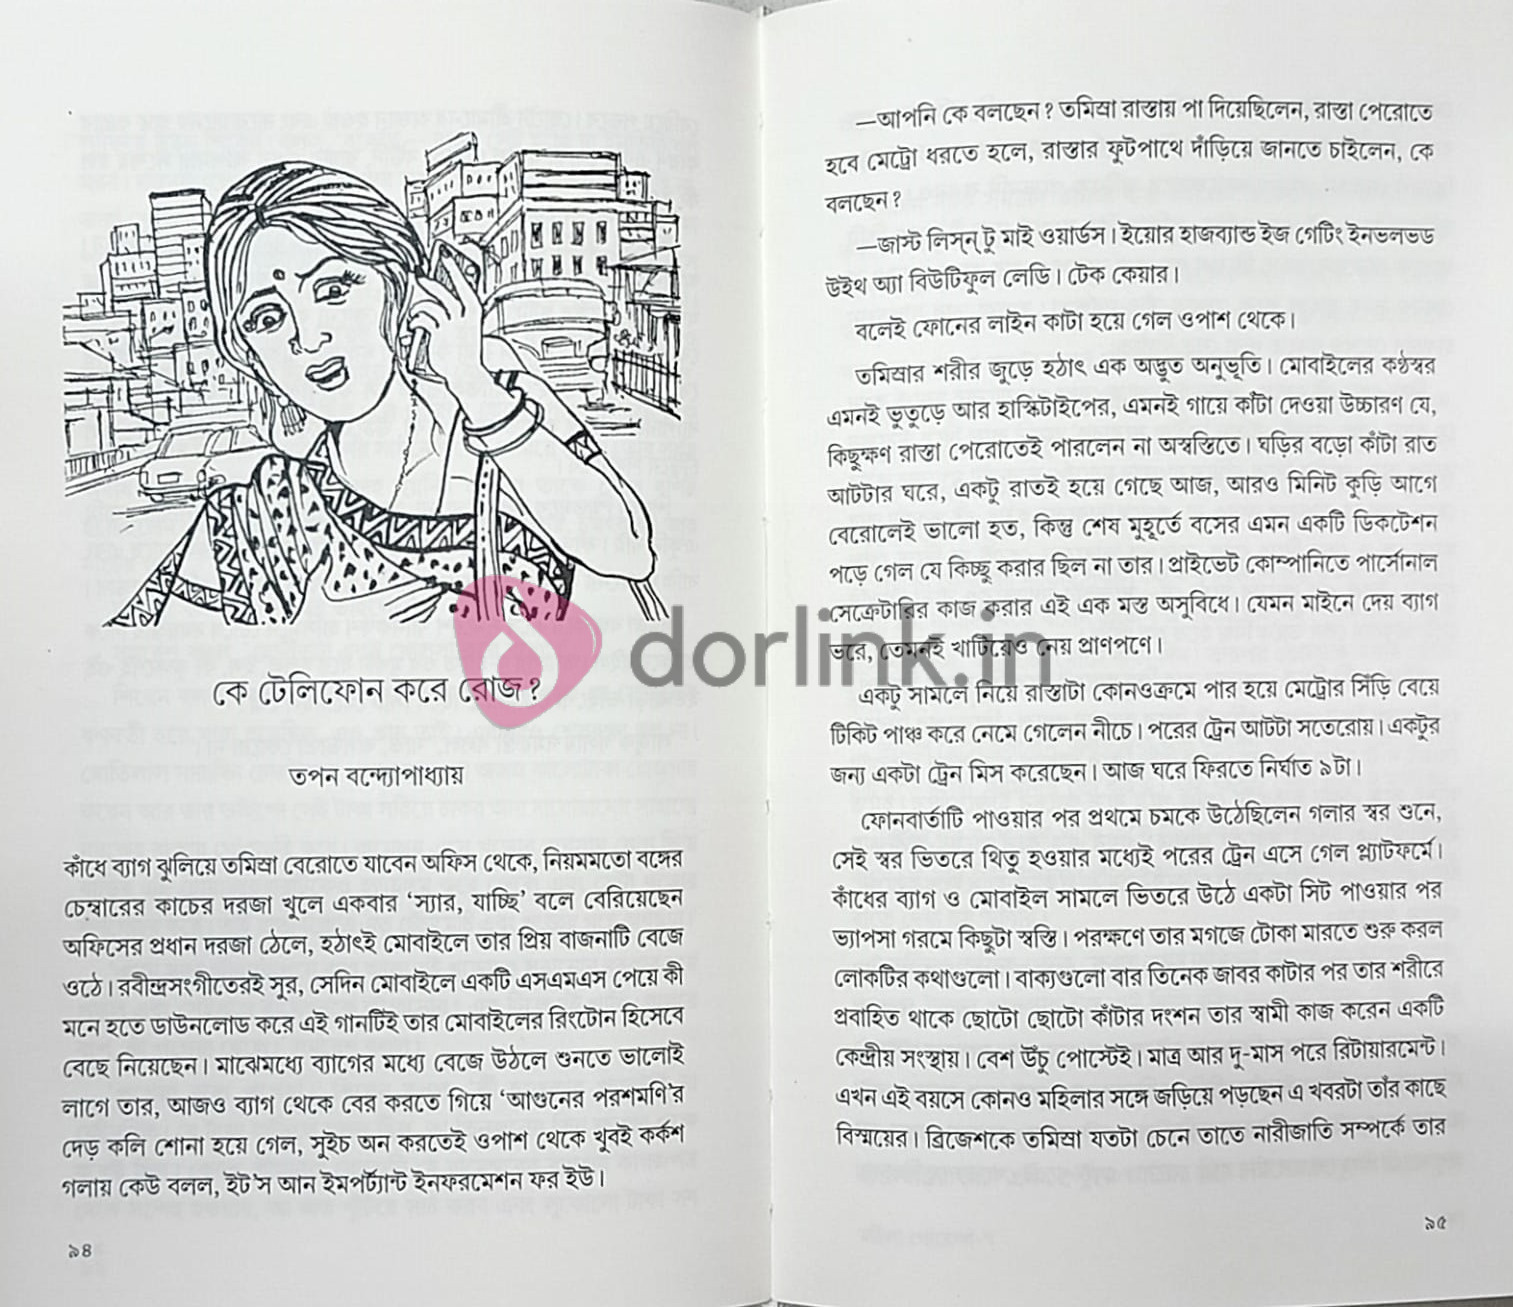 কে টেলিফোন করে রোজ?
তপন বন্দ্যোপাধ্যায়
কাঁধে ব্যাগ ঝুলিয়ে তমিস্রা বেরোতে যাবেন অফিস থেকে, নিয়মমতো বঙ্গের
চেম্বারের কাচের দরজা খুলে একবার ‘স্যার, যাচ্ছি’ বলে বেরিয়েছেন
অফিসের প্রধান দরজা ঠেলে, হঠাৎই মোবাইলে তার প্রিয় বাজনাটি বেজে
ওঠে। রবীন্দ্রসংগীতেরই সুর, সেদিন মোবাইলে একটি এসএমএস পেয়ে কী
মনে হতে ডাউনলোড করে এই গানটিই তার মোবাইলের রিংটোন হিসেবে
বেছে নিয়েছেন। মাঝেমধ্যে ব্যাগের মধ্যে বেজে উঠলে শুনতে ভালোই
লাগে তার, আজও ব্যাগ থেকে বের করতে গিয়ে ‘আগুনের পরশমণি’র
দেড় কলি শোনা হয়ে গেল, সুইচ অন করতেই ওপাশ থেকে খুবই কর্কশ
গলায় কেউ বলল, ইট’স আন ইমপর্ট্যান্ট ইনফরমেশন ফর ইউ।
৯৪
—আপনি কে বলছেন? তমিস্রা রাস্তায় পা দিয়েছিলেন, রাস্তা পেরোতে
হবে মেট্রো ধরতে হলে, রাস্তার ফুটপাথে দাঁড়িয়ে জানতে চাইলেন, কে
বলছেন?
—জাস্ট লিস্‌ন্‌ টু মাই ওয়ার্ডস। ইয়োর হাজব্যান্ড ইজ গেটিং ইনভলভড
উইথ অ্যা বিউটিফুল লেডি। টেক কেয়ার।
বলেই ফোনের লাইন কাটা হয়ে গেল ওপাশ থেকে।
তমিস্রার শরীর জুড়ে হঠাৎ এক অদ্ভুত অনুভূতি। মোবাইলের কণ্ঠস্বর
এমনই ভুতুড়ে আর হাস্কিটাইপের, এমনই গায়ে কাঁটা দেওয়া উচ্চারণ যে,
কিছুক্ষণ রাস্তা পেরোতেই পারলেন না অস্বস্তিতে। ঘড়ির বড়ো কাঁটা রাত
আটটার ঘরে, একটু রাতই হয়ে গেছে আজ, আরও মিনিট কুড়ি আগে
বেরোলেই ভালো হত, কিন্তু শেষ মুহূর্তে বসের এমন একটি ডিকটেশন
পড়ে গেল যে কিচ্ছু করার ছিল না তার। প্রাইভেট কোম্পানিতে পার্সোনাল
সেক্রেটারির কাজ করার এই এক মস্ত অসুবিধে। যেমন মাইনে দেয় ব্যাগ
ভরে, তেমনই খাটিয়েও নেয় প্রাণপণে।
একটু সামলে নিয়ে রাস্তাটা কোনওক্রমে পার হয়ে মেট্রোর সিঁড়ি বেয়ে
টিকিট পাঞ্চ করে নেমে গেলেন নীচে। পরের ট্রেন আটটা সতেরোয়। একটুর
জন্য একটা ট্রেন মিস করেছেন। আজ ঘরে ফিরতে নির্ঘাত ৯টা।
ফোনবার্তাটি পাওয়ার পর প্রথমে চমকে উঠেছিলেন গলার স্বর শুনে,
সেই স্বর ভিতরে থিতু হওয়ার মধ্যেই পরের ট্রেন এসে গেল প্ল্যাটফর্মে।
কাঁধের ব্যাগ ও মোবাইল সামলে ভিতরে উঠে একটা সিট পাওয়ার পর
ভ্যাপসা গরমে কিছুটা স্বস্তি। পরক্ষণে তার মগজে টোকা মারতে শুরু করল
লোকটির কথাগুলো। বাক্যগুলো বার তিনেক জাবর কাটার পর তার শরীরে
প্রবাহিত থাকে ছোটো ছোটো কাঁটার দংশন তার স্বামী কাজ করেন একটি
কেন্দ্রীয় সংস্থায়। বেশ উঁচু পোস্টেই। মাত্র আর দু-মাস পরে রিটায়ারমেন্ট।
এখন এই বয়সে কোনও মহিলার সঙ্গে জড়িয়ে পড়ছেন এ খবরটা তাঁর কাছে
বিস্ময়ের। ব্রিজেশকে তমিস্রা যতটা চেনে তাতে নারীজাতি সম্পর্কে তার
৯৫
dorlink.in